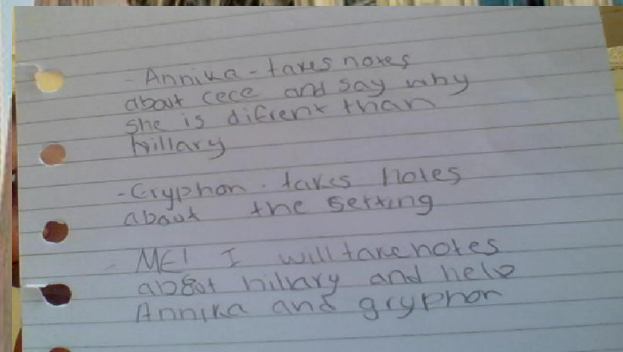 - Annika - takes notes
about cece and say why
she is difrent than
hillary
- Gryphon - takes notes
about the setting
- ME! I will take notes
about hillary and help
Annika and gryphon